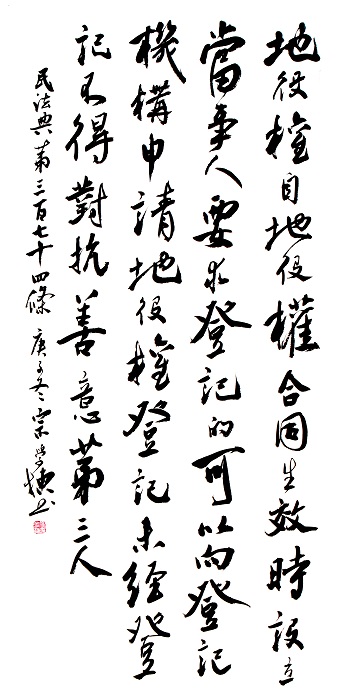 地役權自地役權合同生效時設立
當事人要求登記的可以向登記
機構申請地役權登記未經登
記不得對抗善意第三人
民法典第三百七十四條 庚子冬 宗學書